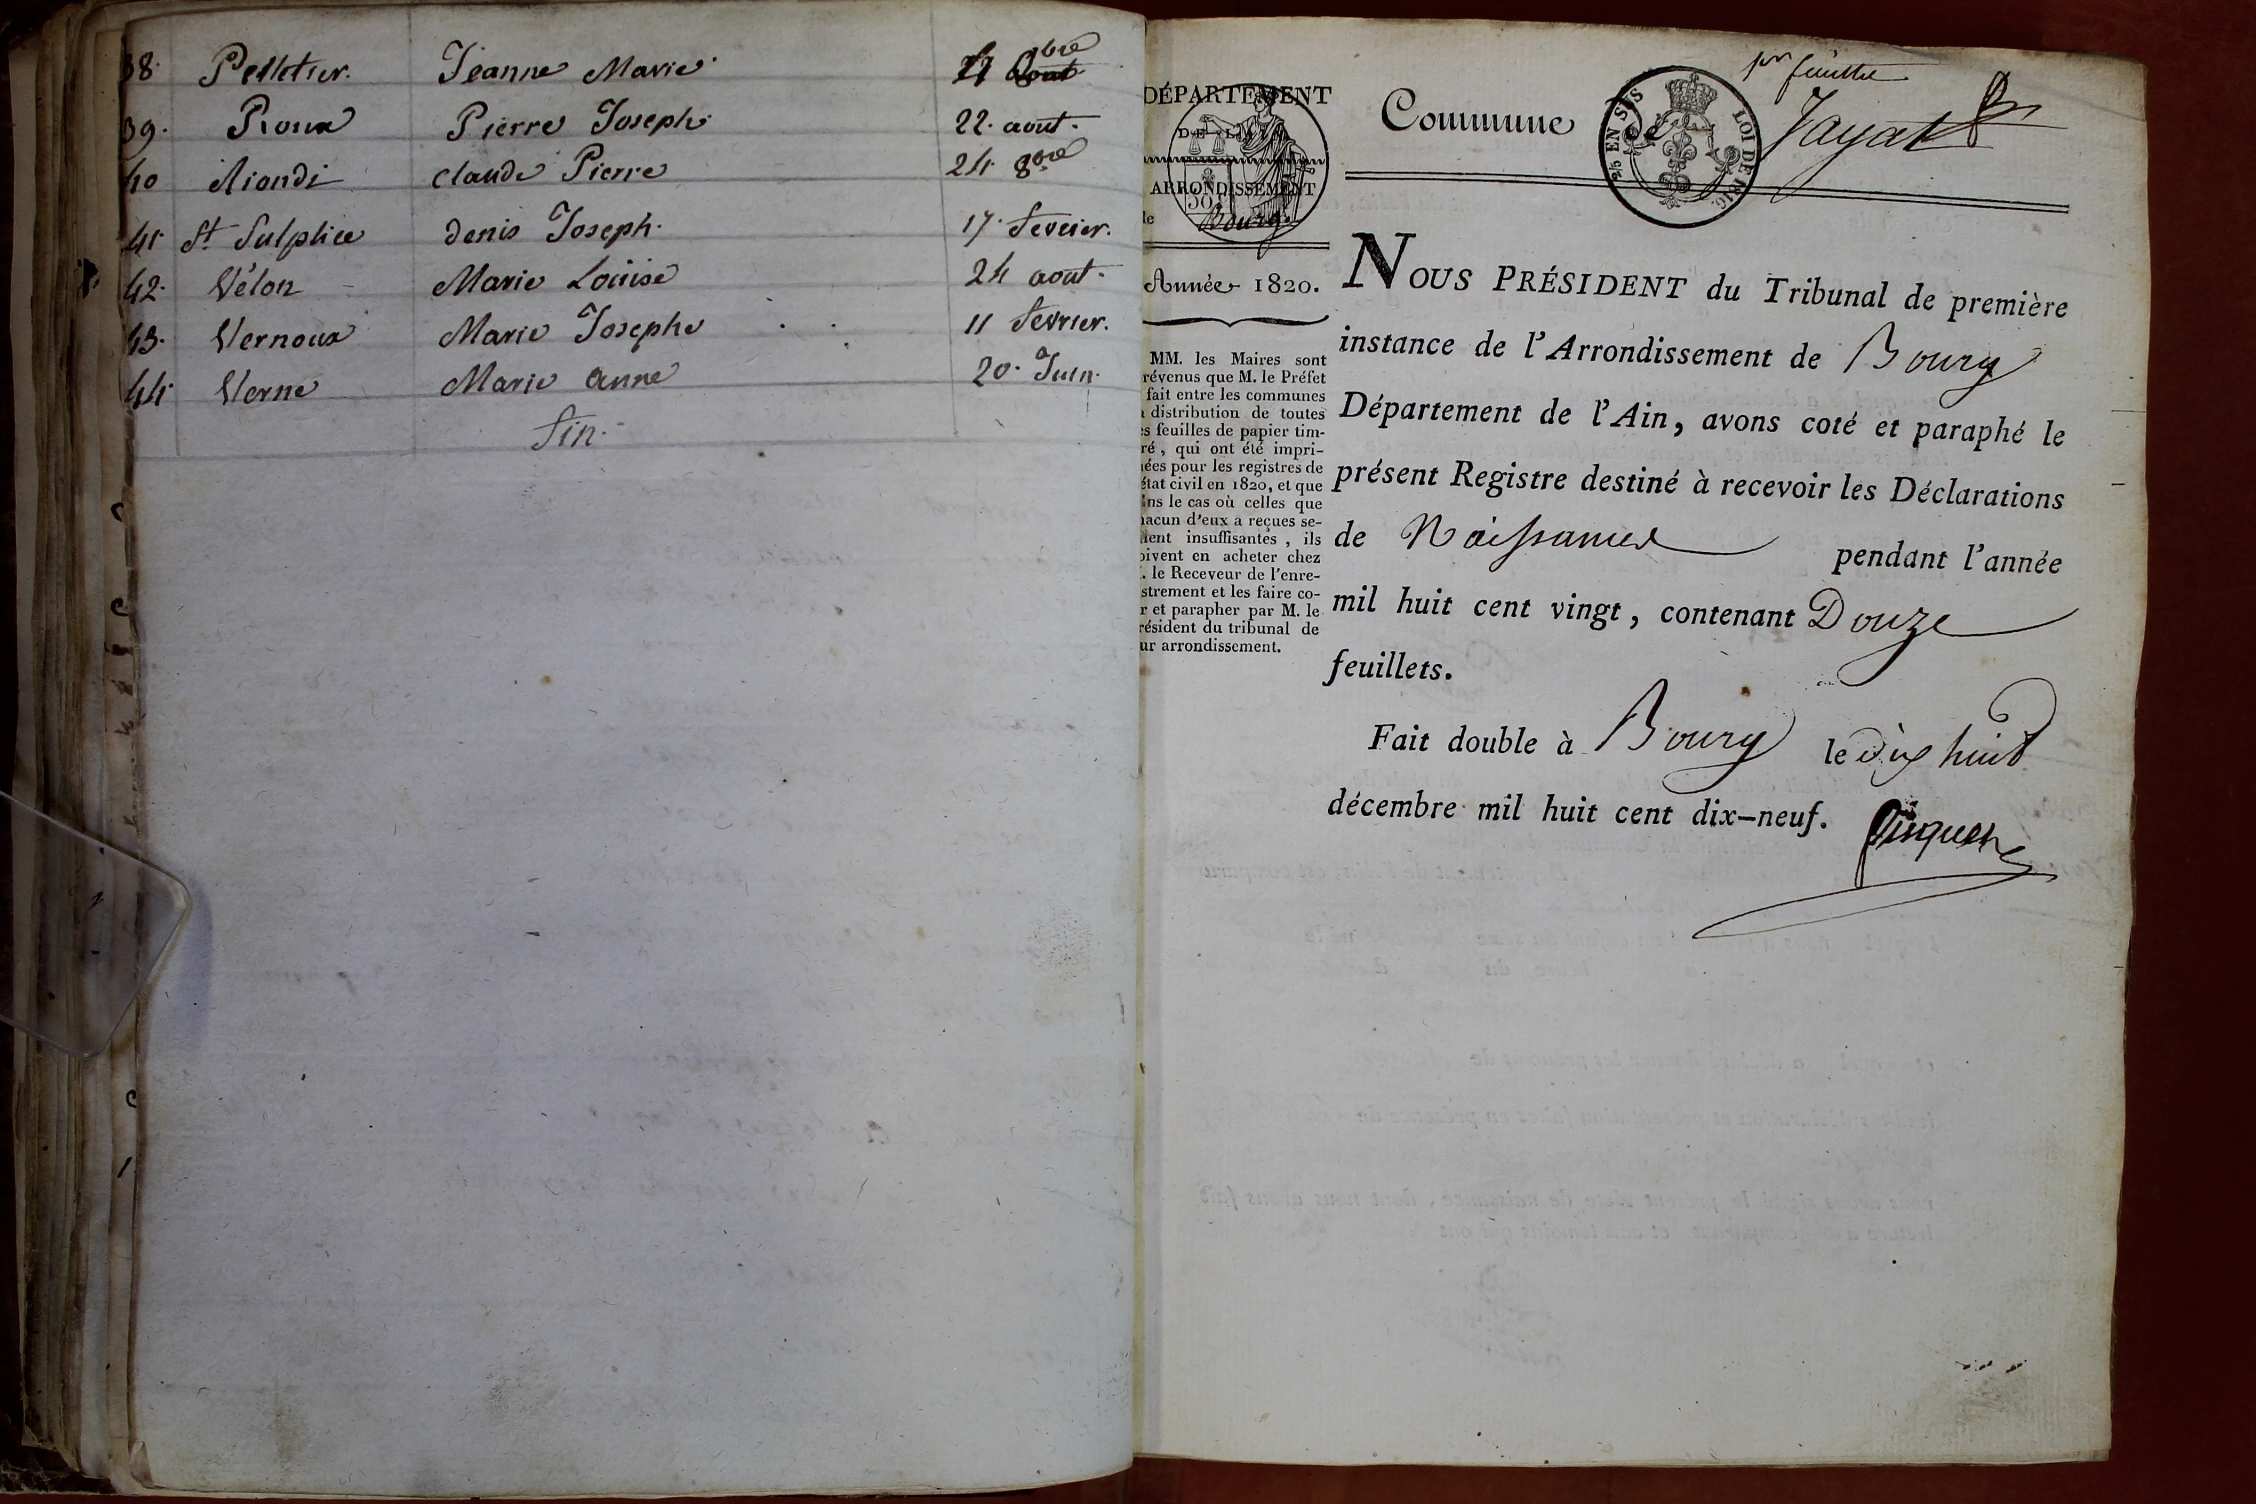 38. Pelletier. Jeanne Marie. 27 8bre
39. Roux Pierre Joseph. 22. aout.
40 Riondi claude Pierre 24 8bre
41. St Sulplice denis Joseph. 17. fevrier.
42. Vélon Marie Louise 24 aout.
43. Vernoux Marie Josephe 11 fevrier.
44 Verne Marie anne 20. Juin.
fin.
pr feuillet
DÉPARTEMENT
DE L'AIN
ARRONDISSEMENT
de Bourg.
Année 1820.
MM. les Maires sont
révenus que M. le Préfet
fait entre les communes
distribution de toutes
es feuilles de papier tim-
ré, qui ont été impri-
ées pour les registres de
état civil en 1820, et que
ns le cas où celles que
acun d'eux a reçues se-
ient insuffisantes, ils
oivent en acheter chez
. le Receveur de l'enre-
strement et les faire co-
r et parapher par M. le
résident du tribunal de
ur arrondissement.
Commune de Jayat
2/5 EN SUS LOI DE 1816.
NOUS PRÉSIDENT du Tribunal de première
instance de l'Arrondissement de Bourg
Département de l'Ain, avons coté et paraphé le
présent Registre destiné à recevoir les Déclarations
de Naissances pendant l'année
mil huit cent vingt, contenant Douze
feuillets.
Fait double à Bourg le dix huit
décembre mil huit cent dix-neuf.